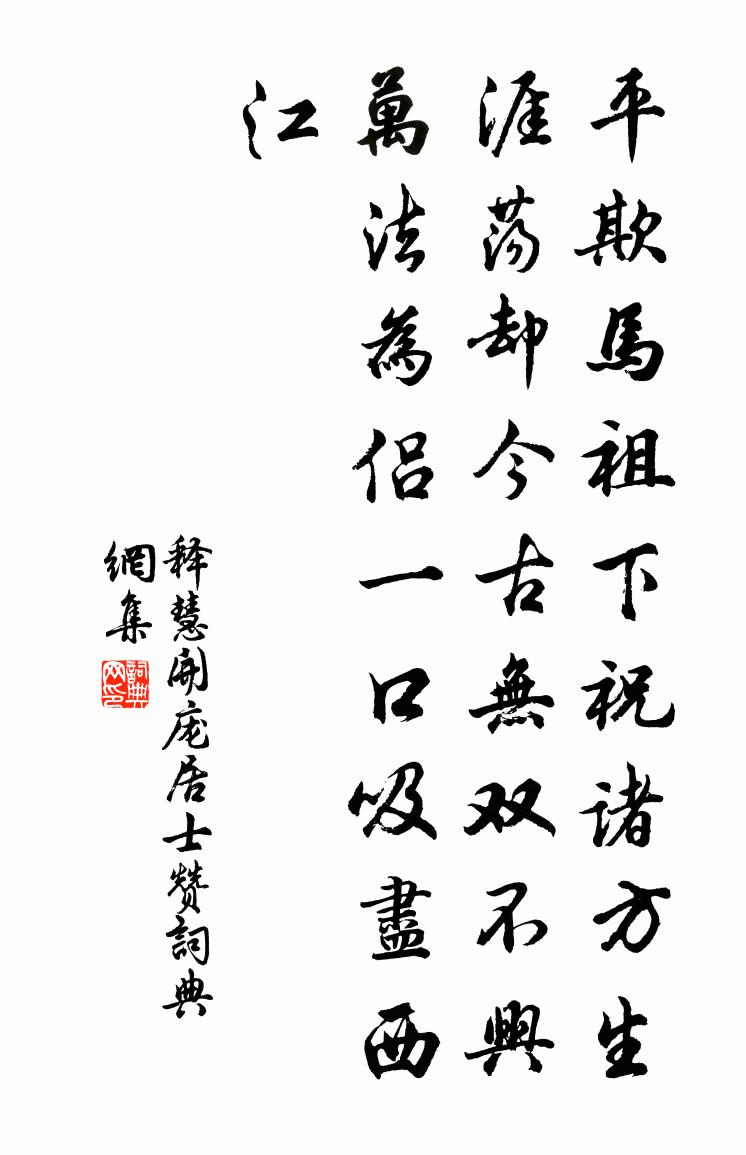 平欺馬祖下祝諸方生
涯蕩却今古無双不興
萬法為侣一口吸盡西
江
释慧開庞居士赞詞典
網集
詞典
网印